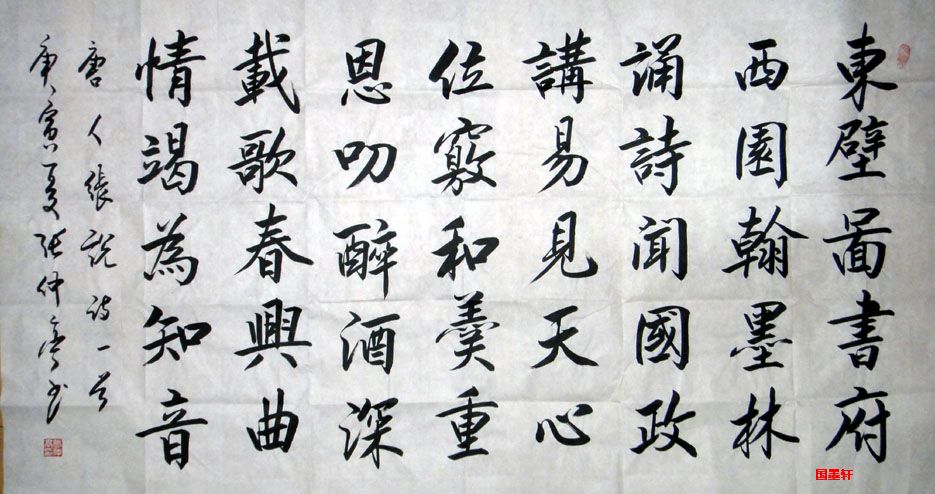 東壁啚書府
西園翰墨林
誦詩聞國政
講易見天心
位竊和羹重
恩叨醉酒深
載歌春興曲
情竭為知音
唐人張說詩一首
庚寅夏張仲亭书
国墨轩